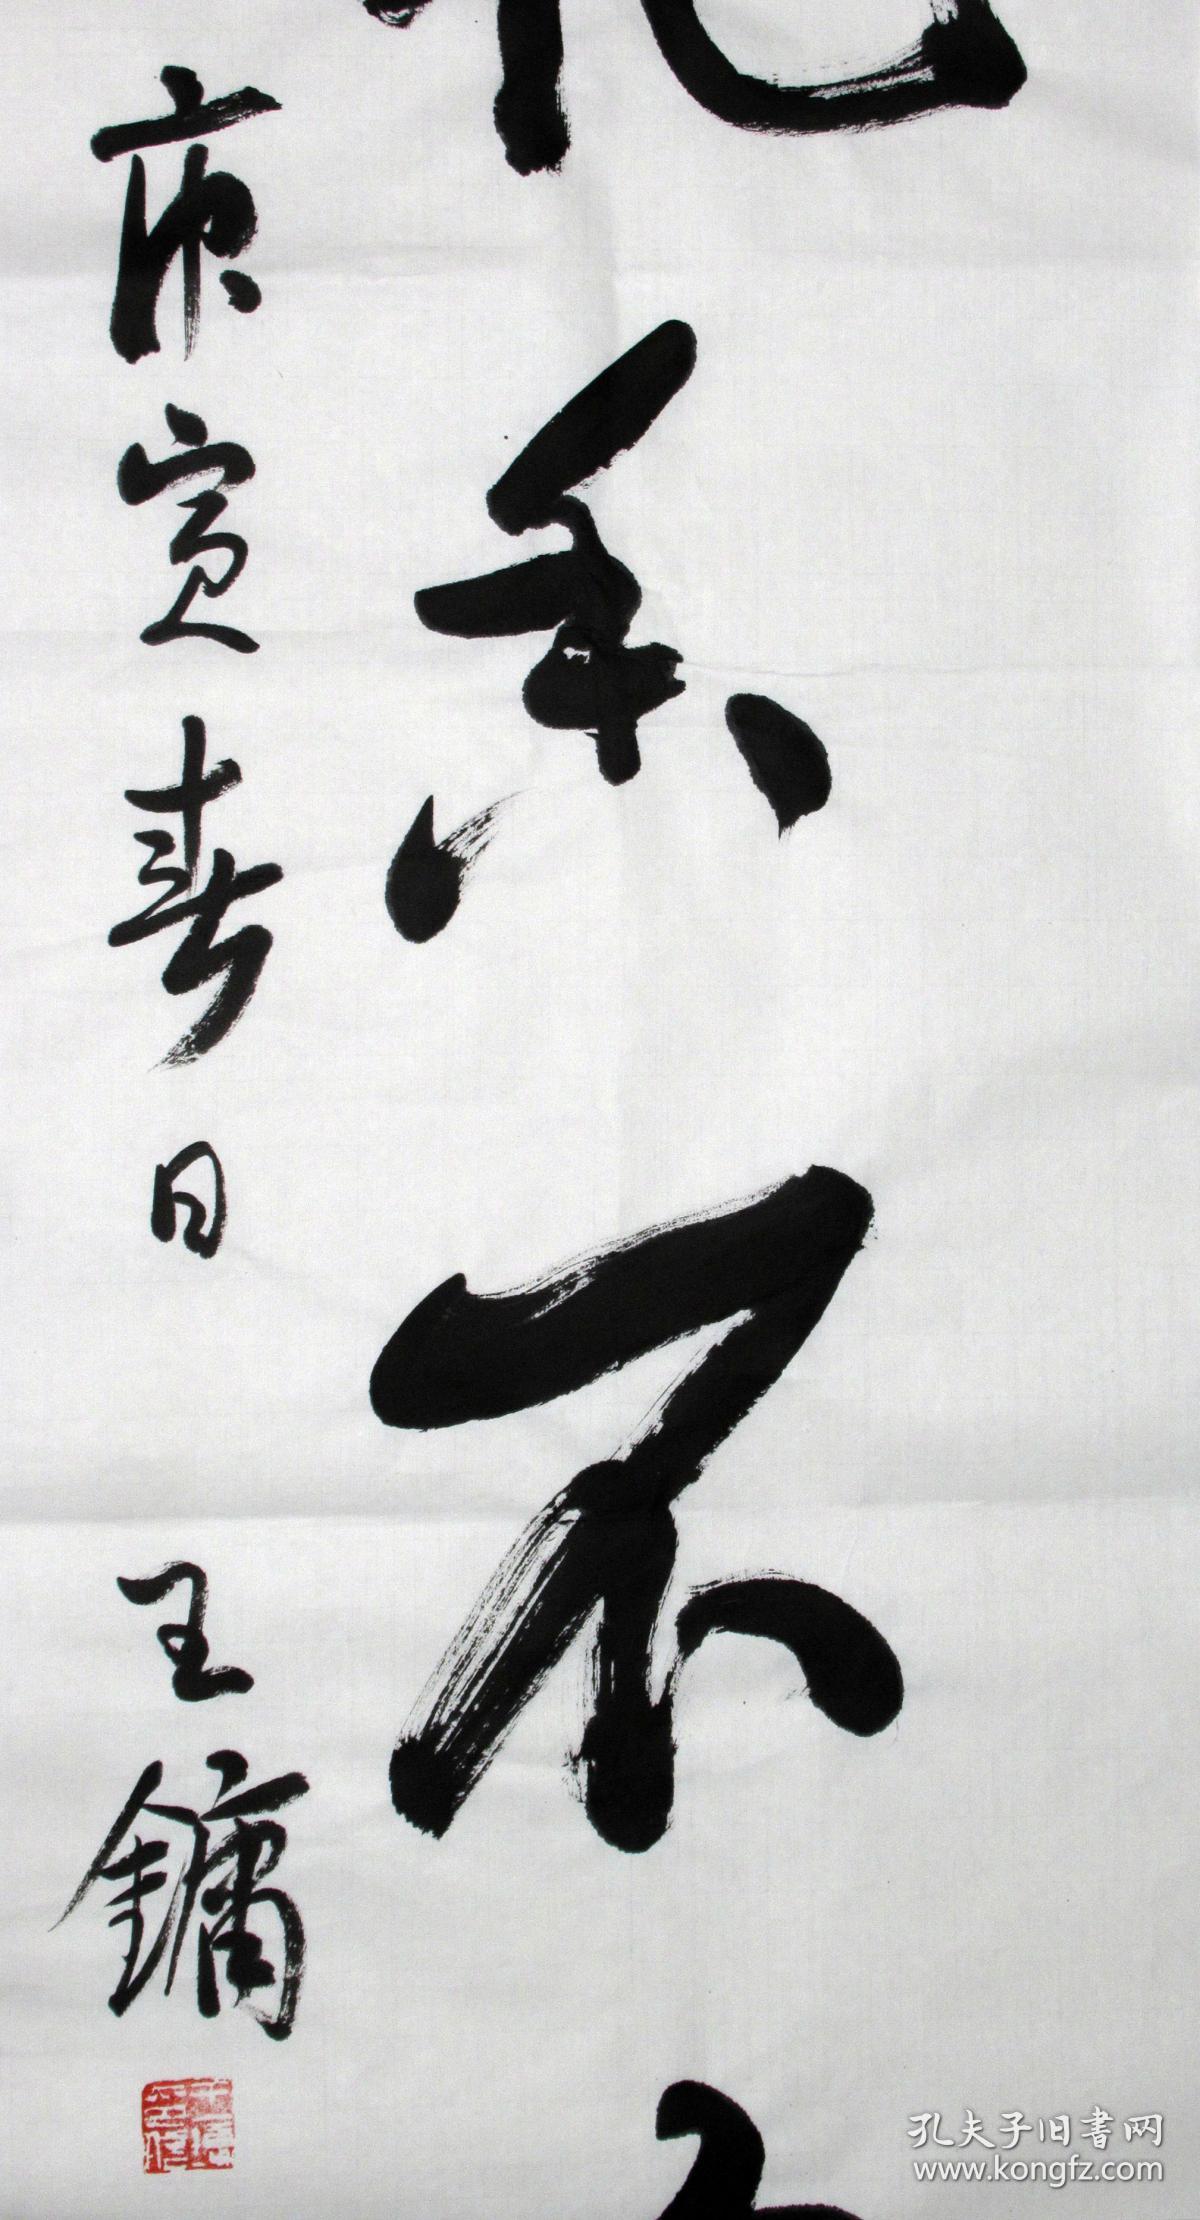 香不
庚寅春日 王鏞
孔夫子旧书网
www.kongfz.com